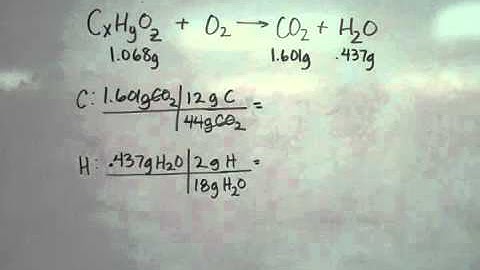 CxHyOz + O2 → CO2 + H2O
1.068g 1.601g .437g
C: 1.601gCO2 | 12 g C =
44gCO2
H: .437g H2O | 2 g H =
18g H2O